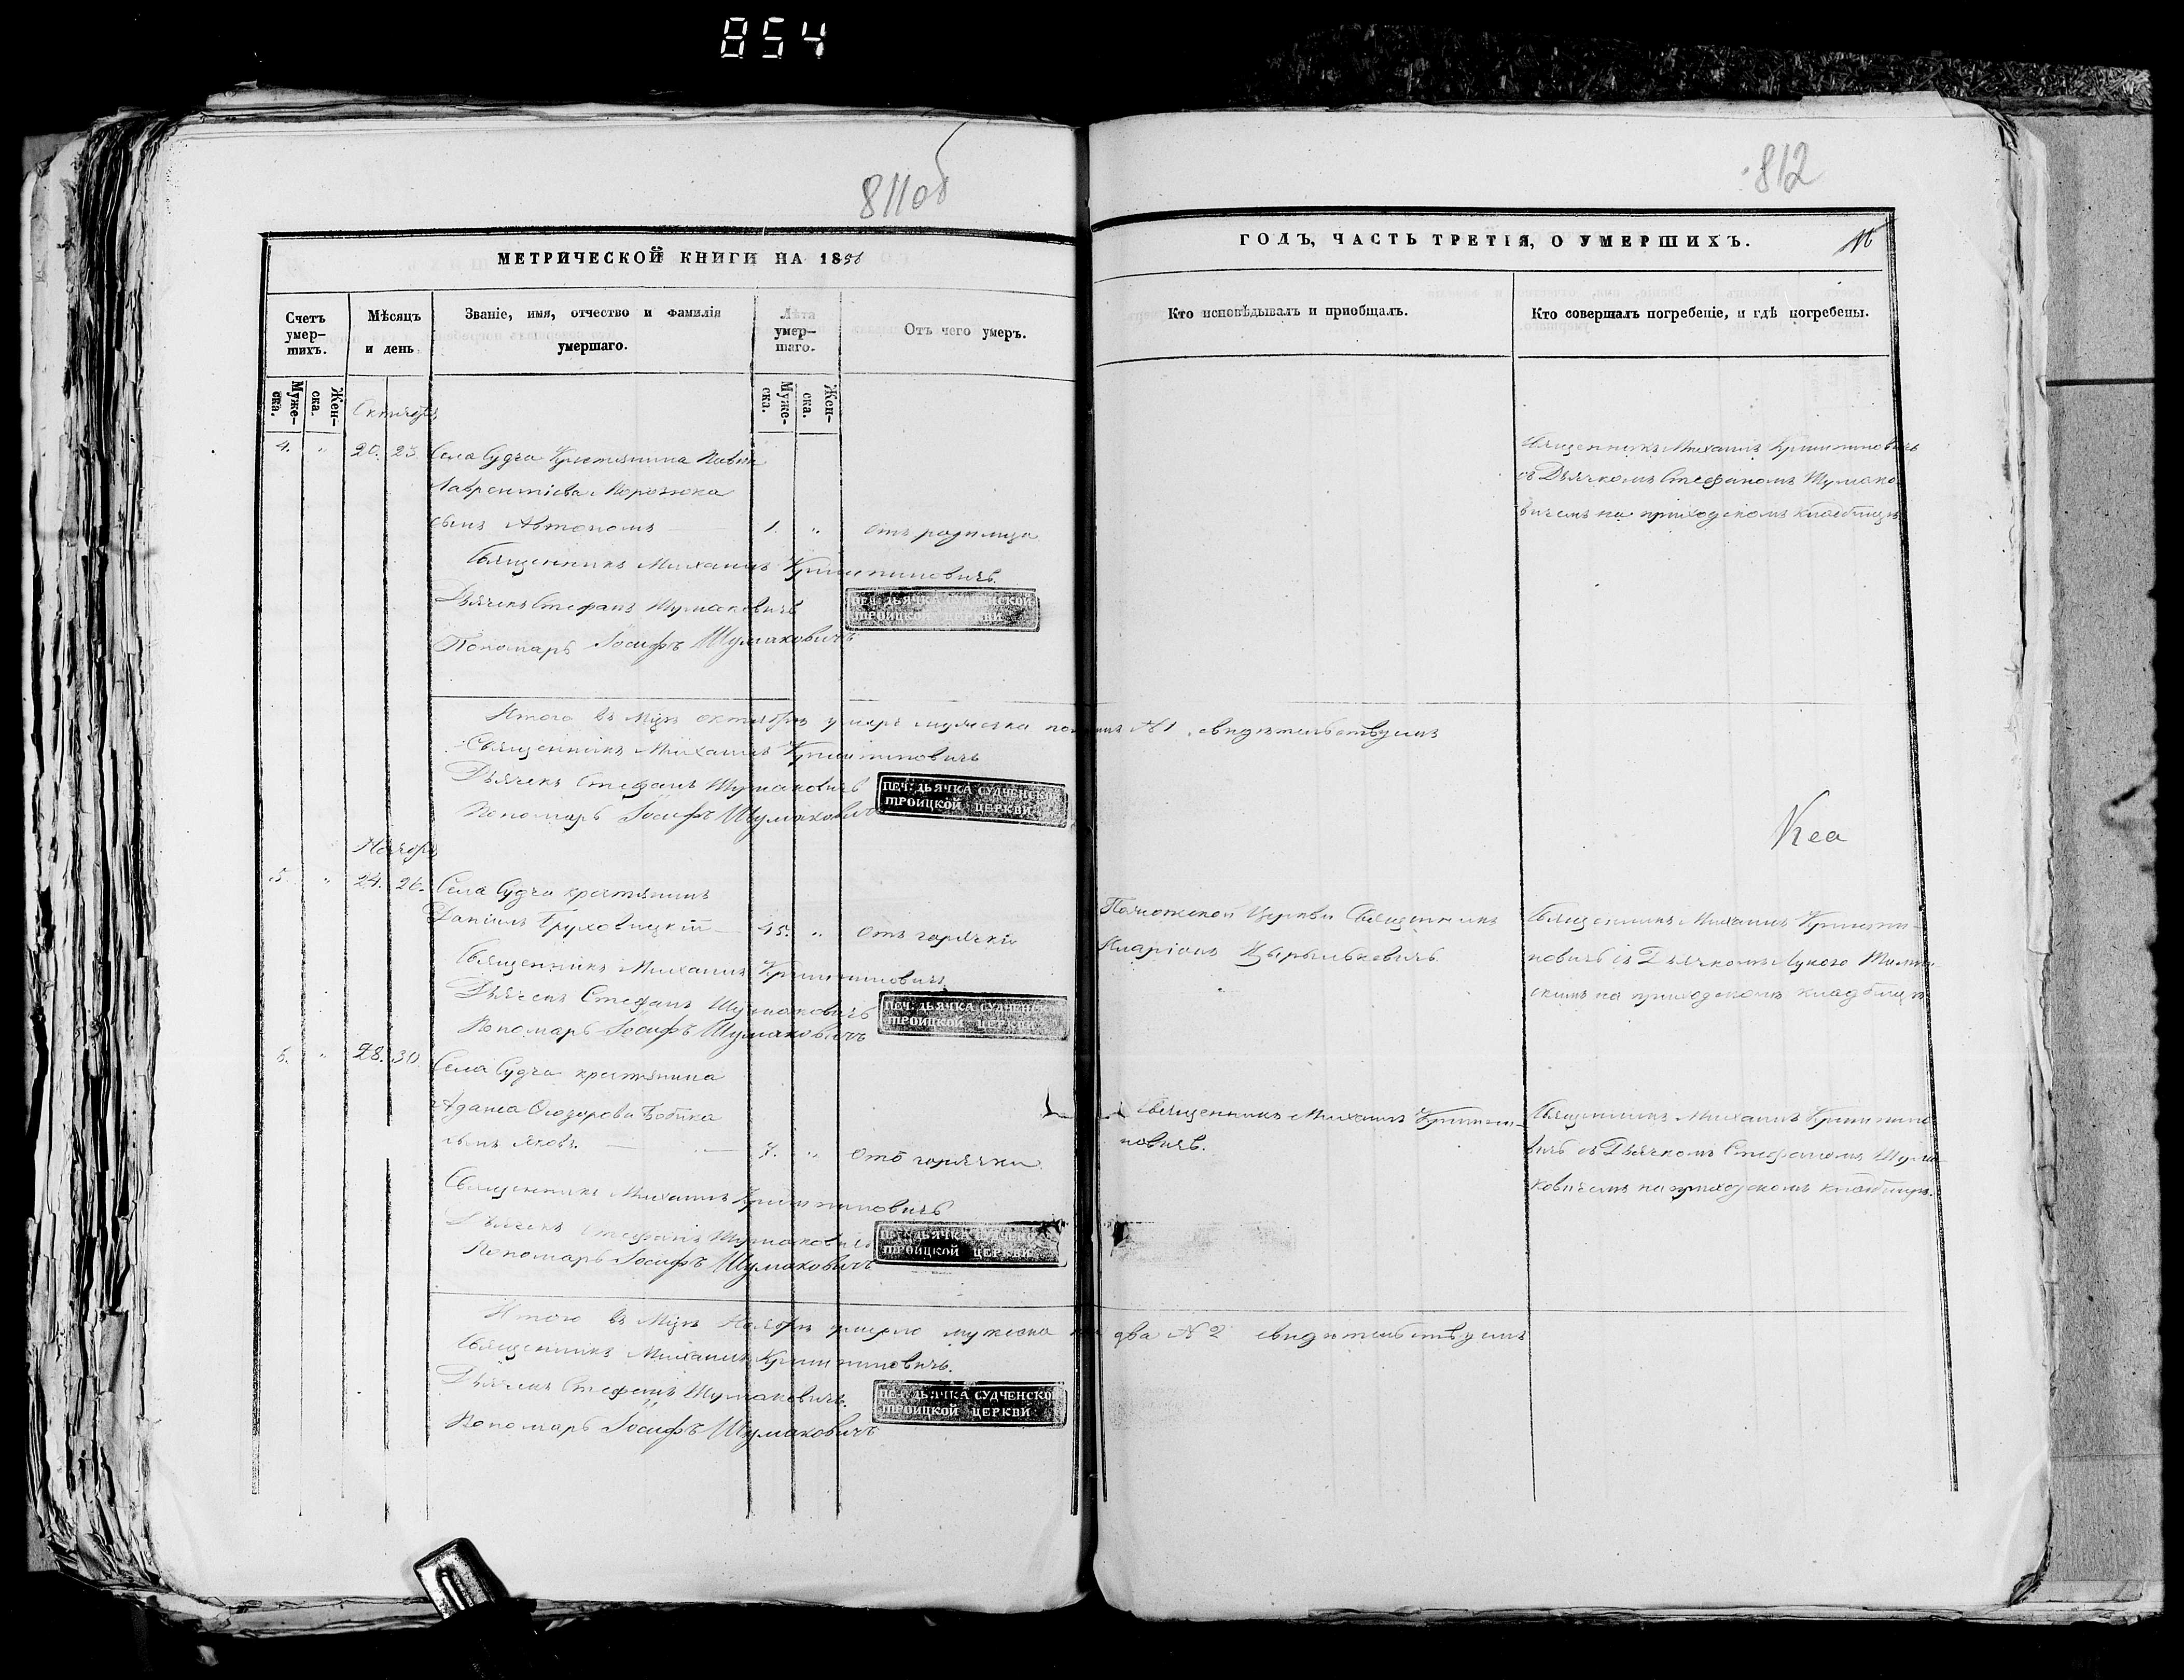 854
811об
812
МЕТРИЧЕСКОЙ КНИГИ НА 1858
ГОДЪ, ЧАСТЬ ТРЕТІЯ, О УМЕРШИХЪ.
Счетъ умер-
шихъ.
Мѣсяцъ
и день
Званіе, имя, отчество и фамилія
умершаго.
Лѣта
умер-
шаго.
Отъ чего умеръ.
Кто исповѣдывалъ и пріобщалъ.
Кто совершалъ погребеніе, и гдѣ погребены.
Муже-
ска.
Жен-
ска.
Муже-
ска.
Жен-
ска.
4. " 20. 23. Села Судча Крестянина
Лаврентіева Морозюка
сынъ Автономъ 1. " отъ родимца
Священникъ Михаилъ
съ Дьячкомъ Стефаномъ Шумако-
вичемъ на приходскомъ кладбищѣ
Священникъ Михаилъ
Дьячекъ Стефанъ Шумаковичъ
ПЕЧ: ДЬЯЧКА СУДЧЕНСКОЙ
ТРОИЦКОЙ ЦЕРКВИ
Пономарь Іосифъ Шумаковичъ
Итого въ Мцѣ октябрѣ умеръ мужеска полу №1. свидѣтельствуемъ
Священникъ Михаилъ
Дьячекъ Стефанъ Шумаковичъ
Пономарь Іосифъ Шумаковичъ
ПЕЧ: ДЬЯЧКА СУДЧЕНСКОЙ
ТРОИЦКОЙ ЦЕРКВИ
5. " 24. 26. Села Судча крестянинъ
Даніилъ Бруховицкій 45. " Отъ горячки
Церкви Священникъ
Иларіонъ
Священникъ Михаилъ
новичъ съ Дьячкомъ
на приходскомъ кладбищѣ
Священникъ Михаилъ
Дьячекъ Стефанъ Шумаковичъ
Пономарь Іосифъ Шумаковичъ
ПЕЧ: ДЬЯЧКА СУДЧЕНСКОЙ
ТРОИЦКОЙ ЦЕРКВИ
6. " 28. 30. Села Судча крестянина
Адама
сынъ Яковъ. 7. " Отъ горячки
Священникъ Михаилъ
новичъ.
Священникъ Михаилъ
вичъ съ Дьячкомъ Стефаномъ Шума-
ковичемъ на приходскомъ кладбищѣ.
Священникъ Михаилъ
Дьячекъ Стефанъ Шумаковичъ
Пономарь Іосифъ Шумаковичъ
ПЕЧ: ДЬЯЧКА СУДЧЕНСКОЙ
ТРОИЦКОЙ ЦЕРКВИ
Итого въ Мцѣ Ноябрѣ умерло мужеска два №2 свидѣтельствуемъ
Священникъ Михаилъ
Дьячекъ Стефанъ Шумаковичъ.
Пономарь Іосифъ Шумаковичъ
ПЕЧ: ДЬЯЧКА СУДЧЕНСКОЙ
ТРОИЦКОЙ ЦЕРКВИ